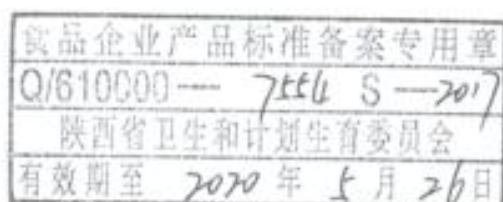 食品企业产品标准备案专用章
Q/610000— 7554 S—2017
陕西省卫生和计划生育委员会
有效期至 2020 年 5 月 26日